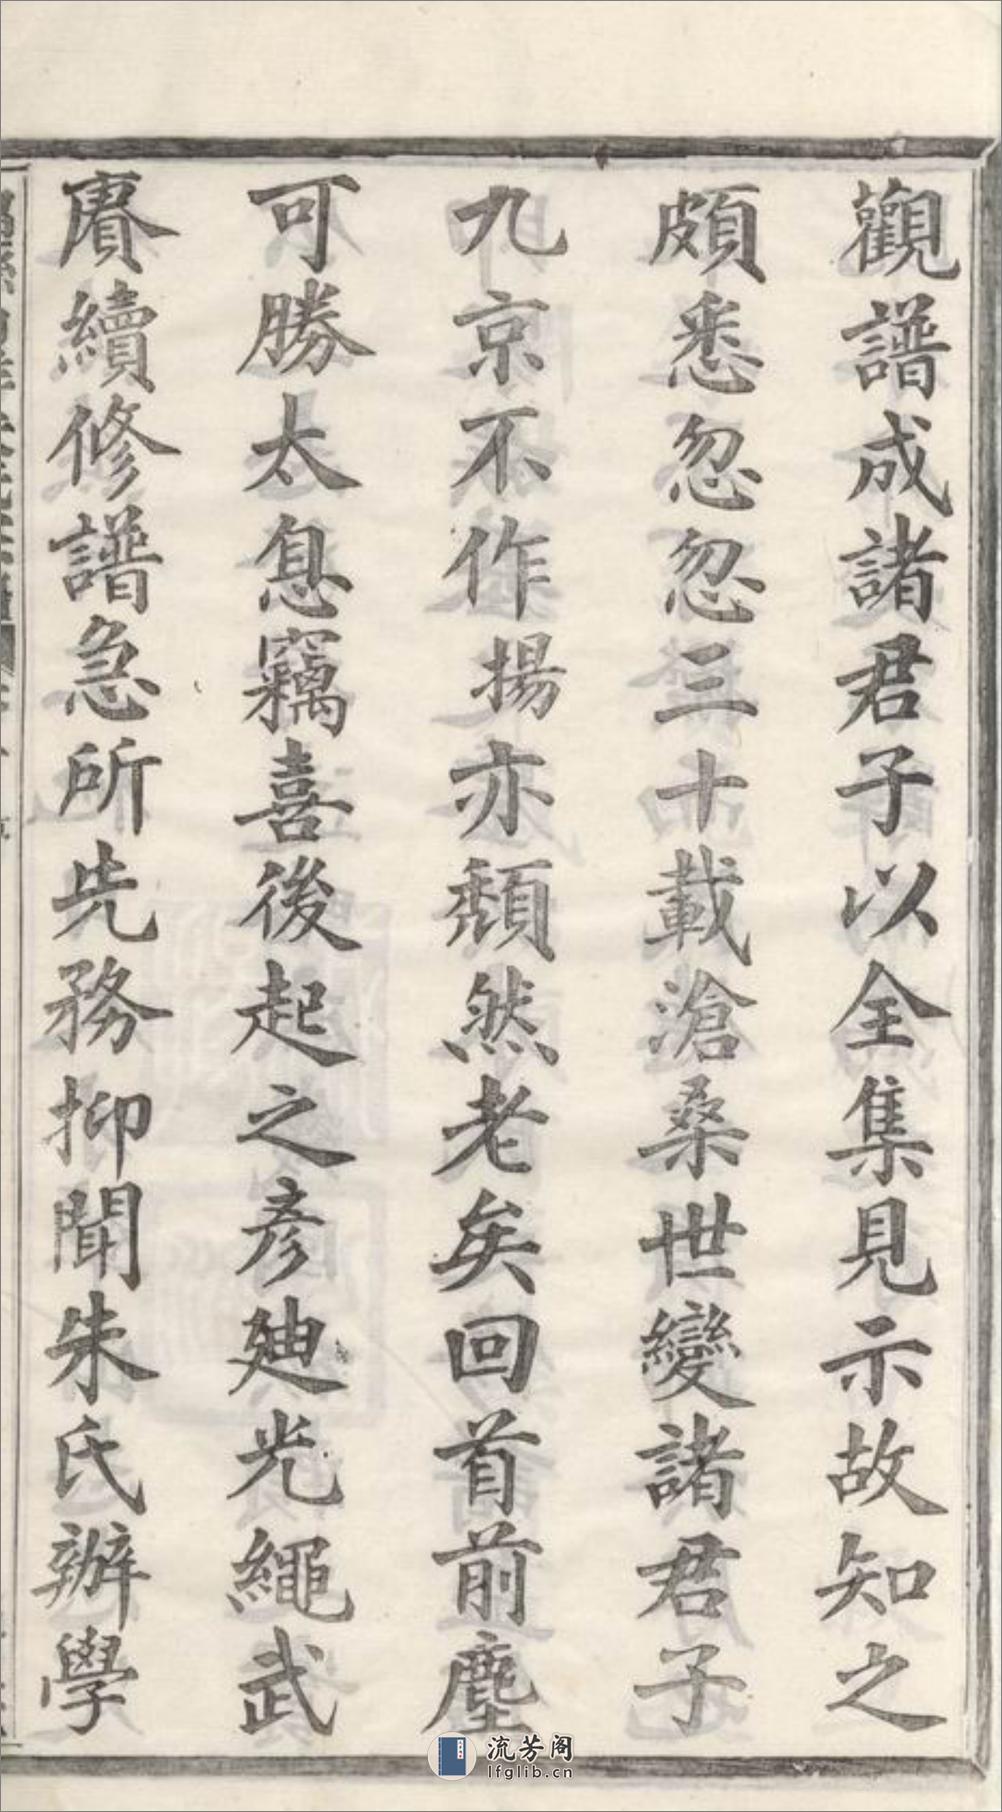 觀譜成諸君子以全集見示故知之
頗悉忽忽三十載滄桑世變諸君子
九京不作揚亦頹然老矣回首前塵
可勝太息竊喜後起之彥廸光繩武
賡續修譜急所先務抑聞朱氏辦學
流芳阁
lfglib.cn